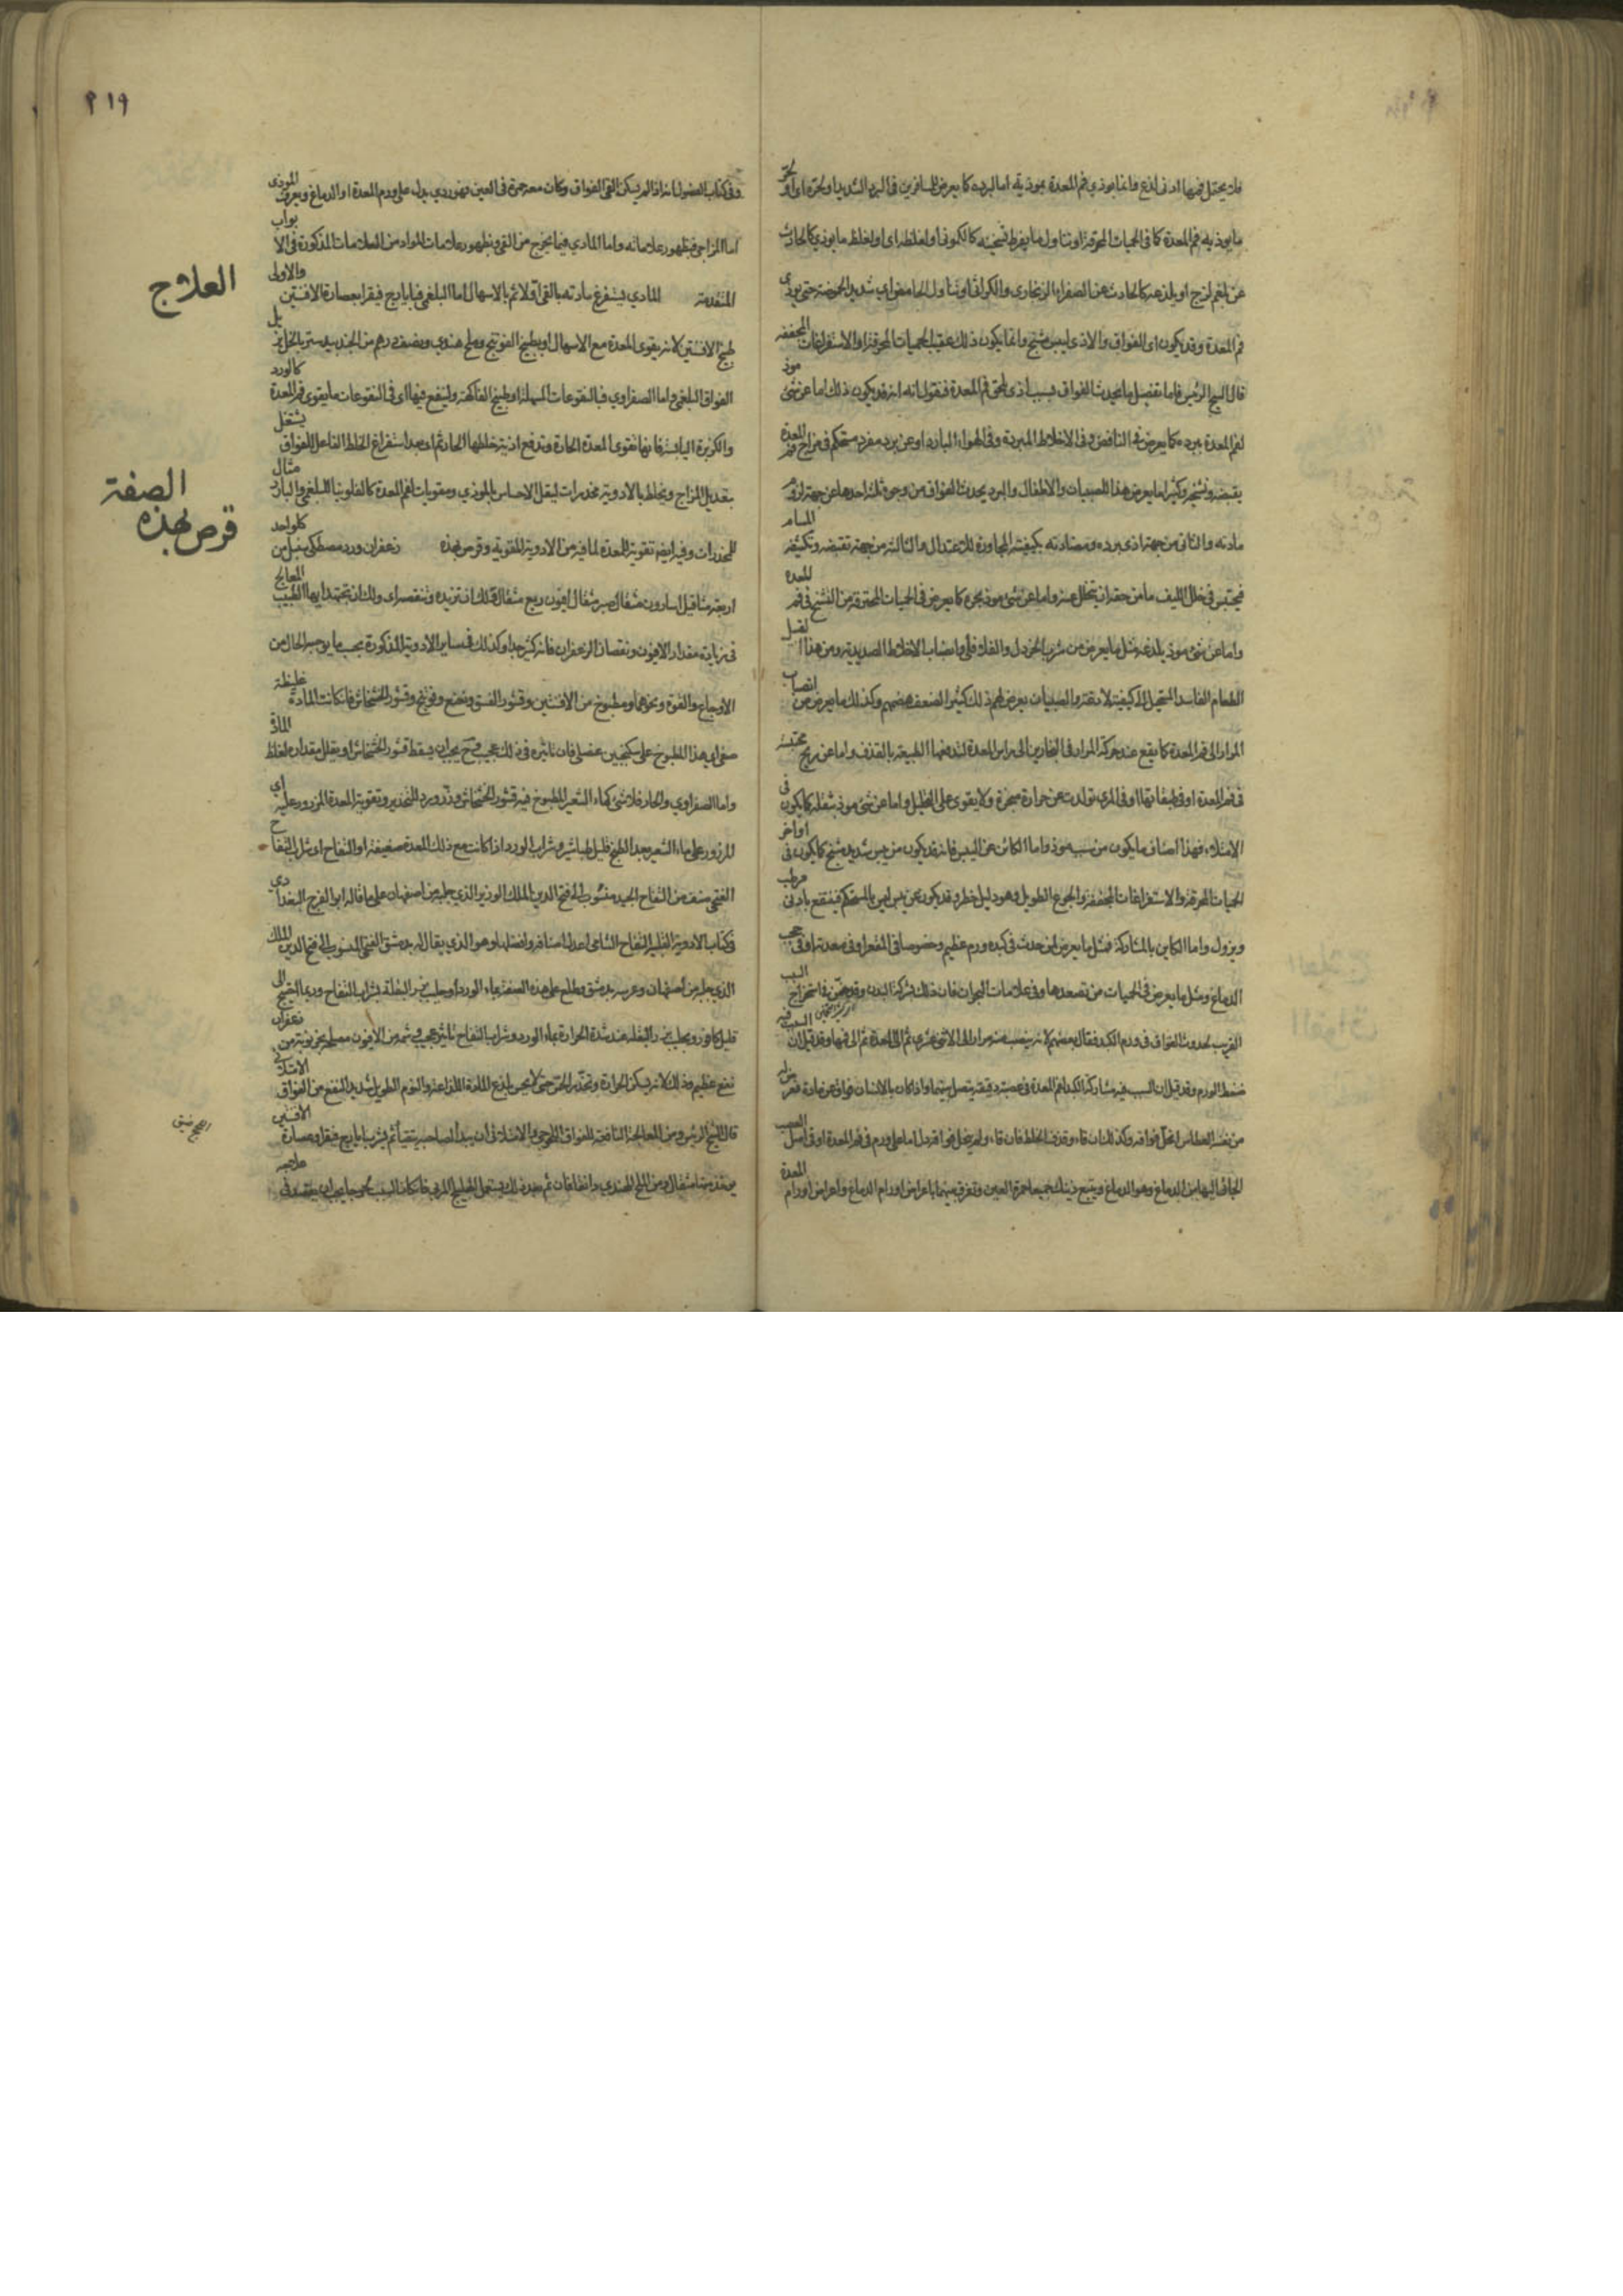 فلا يحتمل فمها ادنى لذع فانما يوذي فم المعدة بموذية اما لبرده كما يعرض للمسافرين في البرد الشديد او لحره اى او لحر
ما يوذيه فم المعدة كما في الحميات المحرقة او تناول ما يفرط تسخينه كالكمونى او لغلظه اى او لغلظ ما يوذي كالحادث
عن بلغم لزج او يلذعه كالحادث عن الصفراء الزنجارى والكراثى او تناول الحامض اى شديد الحموضة حتى يوذي
فم المعدة وقد يكون اى الفواق والاذى ليبس مشنج وانما يكون ذلك عقيب الحميات المحرقة او الاستفراغات المجففة
قال الشيخ الرئيس فاما تفصيل ما يحدث الفواق بسبب اذى يلحق فم المعدة فنقول انه قد يكون ذلك اما عن شئ موذ
لفم المعدة ببرده كما يعرض في النافض وفى الاخلاط المبردة وفى الهواء البارد او عن برد مفرد مستحكم في مزاج فم المعدة
يقبضه ويشنجه وكثيرا ما يعرض هذا للصبيان والاطفال والبرد يحدث الفواق من وجوه ثلثة احدها من جهة لزوم
مادته والثانى من جهة اذى برده ومضادته بكيفيته المجاوزة للاعتدال والثالث من جهة تقبيضه وتكثيفه المسام
فيحتبس في خلل الليف ما من حقه ان يتحلل عنه واما عن شئ موذ بحره كما يعرض في الحميات المحترقة من التشنج في فم المعدة
واما عن شئ موذ بلذعه مثل ما يعرض من شرب الخردل والفلافلى وانصباب الاخلاط الصديدية ومن هذا القبيل
الطعام الفاسد المستحيل الى كيفية لاذعة والصبيان يعرض لهم ذلك كثيرا لضعف هضمهم وكذلك ما يعرض من انصباب
المرار الى فم المعدة كما يقع عند حركة المرار في البخارين الى راس المعدة لتدفعها الطبيعة بالقذف واما عن ريح محتبسة
في فم المعدة او في طبقاتها او في المرى تولدت عن حرارة مبخرة ولا يقوى على التحليل واما عن شئ موذ بثقله كما يكون في
الامتلاء فهذا اصناف ما يكون من سبب موذ واما الكائن عن اليبس فانه قد يكون من يبس شديد مشنج كما يكون في اواخر
الحميات المحرقة والاستفراغات المجففة والجوع الطويل وهو دليل خطر وقد يكون عن يبس ليس بالمستحكم فينتفع بادنى مرطب
ويزول واما الكاين بالمشاركة فمثل ما يعرض لمن حدث في كبده ورم عظيم وخصوصا في المقعر او في معدته او في حجب
الدماغ ومثل ما يعرض في الحميات من تصعدها وفي علامات البحران فان ذلك بشركة البدن وقد استخراج السبب
القريب لحدوث الفواق في ورم الكبد فقال بعضهم لانه ينصب منه مرار الى الاثنى عشرى ثم الى المعدة ثم الى فمها وقد قيل ان السبب فيه
ضغط الورم وقد قيل ان السبب فيه مشاركة الكبد لفم المعدة في عصبة دقيقة يتصل بينهما واذا كان بالانسان فواق عن مادة فعرض له
من نفسه العطاس انحل فواقه وكذلك ان قاء وقذف الخلط فان قاء ولم ينحل فواقه دل اما على ورم في فم المعدة او في اصل العصب
الجائى اليها من الدماغ وهو الدماغ ويتبع ذينك جميعا حمرة العين وتفرق بينهما باعراض اورام الدماغ واعراض اورام المعدة
٢١٩
وفي كتاب الفصول انه اذا لم يسكن القى الفواق وكان معه حمرة في العين فهو ردي يدل على ورم المعدة او الدماغ ويعرف الموذى
اما المزاجى فبظهور علاماته واما المادي فيما يخرج من القى وبظهور علامات المواد من العلامات المذكورة في الابواب
المتقدمة المادي يستفرغ مادته بالقى اولا ثم بالاسهال اما البلغمى فبايارج فيقرا بعصارة الافسنتين والاولى
طبيخ الافسنتين لانه يقوى المعدة مع الاسهال او بطبيخ الفوتنج وملح هندي ونصف درهم من الجندبيدستر بالخل يزيل
الفواق البلغمى واما الصفراوي فبالنقوعات المسهلة او طبيخ الفاكهة ولينقع فيها اى في النقوعات ما يقوى فم المعدة كالورد
والكزبرة اليابسة فانها تقوى المعدة الحارة وتدفع اذية خلطها الحار ثم اى بعد استفراغ الخلط الفاعل للفواق يشتغل
بتعديل المزاج ويخلط بالادوية مخدرات ليقل الاحساس بالموذي ومقويات لفم المعدة كالفلونيا للبلغمى والبارد مثال
للمخدرات وفيه ايضا تقوية للمعدة لما فيه من الادوية المقوية وقرص بهذه زعفران ورد مصطكى سنبل من كل واحد
اربعة مثاقيل اسارون مثقال صبر مثقال افيون ربع مثقال فلك ان تزيده وتنقصه اى ولك ان تجتهد ايها الطبيب المعالج
في زيادة مقدار الافيون ونقصان الزعفران فانه كثير جدا وكذلك في ساير الادوية المذكورة بحسب ما يوجب الحال من
الاوجاع والقوة ونحوهما ومطبوخ من الافسنتين وقشور الفستق ونعنع وفوتنج وقشور الخشخاش فان كانت المادة غليظة
صفى اى هذا المطبوخ على سكنجبين عنصلى فان تاثيره في ذلك عجيب وح يجب ان يسقط قشور الخشخاش او يقلل مقداره لغلظ المادة
واما الصفراوي والحار فلا شئ كماء الشعير المطبوخ فيه قشور الخشخاش وذر ورد للتخدير وتقوية المعدة المزرور عليه اى
المزرور على ماء الشعير بعد الطبخ قليل طباشير وشراب الورد اذا كانت مع ذلك المعدة ضعيفة او التفاح او شراب التفاح
الفتحى صنف من التفاح الجيد منسوب الى فتح الدين الملك الوزير الذي جلبه من اصفهان على ما قاله ابو الفرج البغدادي
وفي كتاب الادوية القلبية التفاح الشامى اعدل اصنافه وافضلها وهو الذي يقال له بدمشق الفتحى المنسوب الى فتح الدين الملك
الذي جلبه من اصفهان وغرسه بدمشق وطلع على هذه الصفة بماء الورد او حليب بزر البقلة بشراب التفاح وربما احتيج الى
قليل كافور وبحليب بزر البقلة عند شدة الحرارة بماء الورد وشراب التفاح تاثير عجيب وشمه من الافيون مصلحه بخرنوبة من زعفران
نفع عظيم وذلك لانه يسكن الحرارة ويخدر الحس حتى لا يحس بلذع المادة اللذاعة والنوم الطويل شديد النفع من الفواق الامتلائى
قال الشيخ الرئيس ومن المعالجة النافعة للفواق الرطوبى والامتلائى ان يبدأ صاحبه يتقيأ ثم يشرب ايارج فيقرا وعصارة الافسنتين
يوخذ منها مثقال ومن الملح الهندي دانقان ثم بعد ذلك يستعمل الهليلج المربى فان كان السبب يحسب ما يجب ان يقصد في علاجه
العلاج
الصفة
قرص بهذه